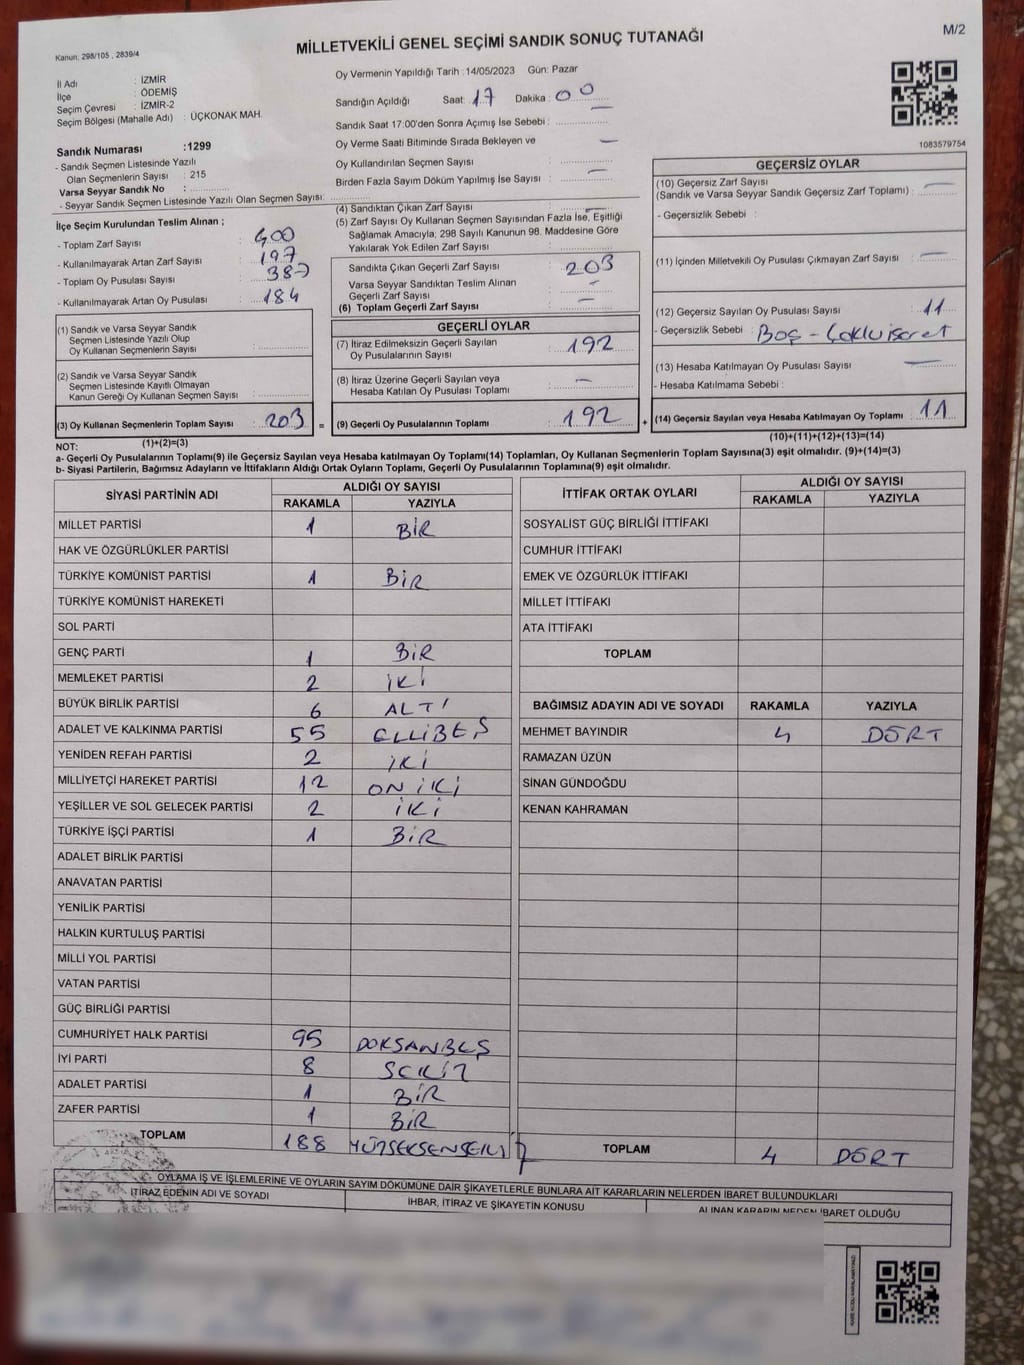 Kanun: 298/105 , 2839/4
MİLLETVEKİLİ GENEL SEÇİMİ SANDIK SONUÇ TUTANAĞI
M/2
İl Adı : İZMİR
İlçe : ÖDEMİŞ
Seçim Çevresi : İZMİR-2
Seçim Bölgesi (Mahalle Adı) : ÜÇKONAK MAH.
Sandık Numarası :1299
- Sandık Seçmen Listesinde Yazılı
Olan Seçmenlerin Sayısı : 215
Varsa Seyyar Sandık No :
- Seyyar Sandık Seçmen Listesinde Yazılı Olan Seçmen Sayısı:
Oy Vermenin Yapıldığı Tarih :14/05/2023 Gün: Pazar
Sandığın Açıldığı Saat: 17 Dakika : 00
Sandık Saat 17:00'den Sonra Açımış İse Sebebi :
Oy Verme Saati Bitiminde Sırada Bekleyen ve —
Oy Kullandırılan Seçmen Sayısı :
Birden Fazla Sayım Döküm Yapılmış İse Sayısı : —
1083579754
İlçe Seçim Kurulundan Teslim Alınan ;
- Toplam Zarf Sayısı : 400
- Kullanılmayarak Artan Zarf Sayısı : 197
- Toplam Oy Pusulası Sayısı : 387
- Kullanılmayarak Artan Oy Pusulası : 184
(1) Sandık ve Varsa Seyyar Sandık
Seçmen Listesinde Yazılı Olup
Oy Kullanan Seçmenlerin Sayısı :
(2) Sandık ve Varsa Seyyar Sandık
Seçmen Listesinde Kayıtlı Olmayan
Kanun Gereği Oy Kullanan Seçmen Sayısı :
(3) Oy Kullanan Seçmenlerin Toplam Sayısı : 203
(1)+(2)=(3)
(4) Sandıktan Çıkan Zarf Sayısı : —
(5) Zarf Sayısı Oy Kullanan Seçmen Sayısından Fazla İse, Eşitliği
Sağlamak Amacıyla; 298 Sayılı Kanunun 98. Maddesine Göre
Yakılarak Yok Edilen Zarf Sayısı :
Sandıkta Çıkan Geçerli Zarf Sayısı : 203
Varsa Seyyar Sandıktan Teslim Alınan
Geçerli Zarf Sayısı : —
(6) Toplam Geçerli Zarf Sayısı : —
GEÇERLİ OYLAR
(7) İtiraz Edilmeksizin Geçerli Sayılan
Oy Pusulalarının Sayısı : 192
(8) İtiraz Üzerine Geçerli Sayılan veya
Hesaba Katılan Oy Pusulası Toplamı : —
= (9) Geçerli Oy Pusulalarının Toplamı : 192 +
GEÇERSİZ OYLAR
(10) Geçersiz Zarf Sayısı
(Sandık ve Varsa Seyyar Sandık Geçersiz Zarf Toplamı) : —
- Geçersizlik Sebebi :
(11) İçinden Milletvekili Oy Pusulası Çıkmayan Zarf Sayısı : —
(12) Geçersiz Sayılan Oy Pusulası Sayısı : 11
- Geçersizlik Sebebi : Boş - Çoklu işaret
(13) Hesaba Katılmayan Oy Pusulası Sayısı : —
- Hesaba Katılmama Sebebi :
(14) Geçersiz Sayılan veya Hesaba Katılmayan Oy Toplamı : 11
(10)+(11)+(12)+(13)=(14)
NOT:
a- Geçerli Oy Pusulalarının Toplamı(9) ile Geçersiz Sayılan veya Hesaba katılmayan Oy Toplamı(14) Toplamları, Oy Kullanan Seçmenlerin Toplam Sayısına(3) eşit olmalıdır. (9)+(14)=(3)
b- Siyasi Partilerin, Bağımsız Adayların ve İttifakların Aldığı Ortak Oyların Toplamı, Geçerli Oy Pusulalarının Toplamına(9) eşit olmalıdır.
SİYASİ PARTİNİN ADI ALDIĞI OY SAYISI
RAKAMLA YAZIYLA
MİLLET PARTİSİ 1 BİR
HAK VE ÖZGÜRLÜKLER PARTİSİ
TÜRKİYE KOMÜNİST PARTİSİ 1 BİR
TÜRKİYE KOMÜNİST HAREKETİ
SOL PARTİ
GENÇ PARTİ 1 BİR
MEMLEKET PARTİSİ 2 İKİ
BÜYÜK BİRLİK PARTİSİ 6 ALTI
ADALET VE KALKINMA PARTİSİ 55 ELLİBEŞ
YENİDEN REFAH PARTİSİ 2 İKİ
MİLLİYETÇİ HAREKET PARTİSİ 12 ON İKİ
YEŞİLLER VE SOL GELECEK PARTİSİ 2 İKİ
TÜRKİYE İŞÇİ PARTİSİ 1 BİR
ADALET BİRLİK PARTİSİ
ANAVATAN PARTİSİ
YENİLİK PARTİSİ
HALKIN KURTULUŞ PARTİSİ
MİLLİ YOL PARTİSİ
VATAN PARTİSİ
GÜÇ BİRLİĞİ PARTİSİ
CUMHURİYET HALK PARTİSİ 95 DOKSANBEŞ
İYİ PARTİ 8 SEKİZ
ADALET PARTİSİ 1 BİR
ZAFER PARTİSİ 1 BİR
TOPLAM 188 YÜZSEKSENSEKİZ
İTTİFAK ORTAK OYLARI ALDIĞI OY SAYISI
RAKAMLA YAZIYLA
SOSYALİST GÜÇ BİRLİĞİ İTTİFAKI
CUMHUR İTTİFAKI
EMEK VE ÖZGÜRLÜK İTTİFAKI
MİLLET İTTİFAKI
ATA İTTİFAKI
TOPLAM
BAĞIMSIZ ADAYIN ADI VE SOYADI RAKAMLA YAZIYLA
MEHMET BAYINDIR 4 DÖRT
RAMAZAN ÜZÜN
SİNAN GÜNDOĞDU
KENAN KAHRAMAN
TOPLAM 4 DÖRT
OYLAMA İŞ VE İŞLEMLERİNE VE OYLARIN SAYIM DÖKÜMÜNE DAİR ŞİKAYETLERLE BUNLARA AİT KARARLARIN NELERDEN İBARET BULUNDUKLARI
İTİRAZ EDENİN ADI VE SOYADI
İHBAR, İTİRAZ VE ŞİKAYETİN KONUSU
ALINAN KARARIN NEDEN İBARET OLDUĞU